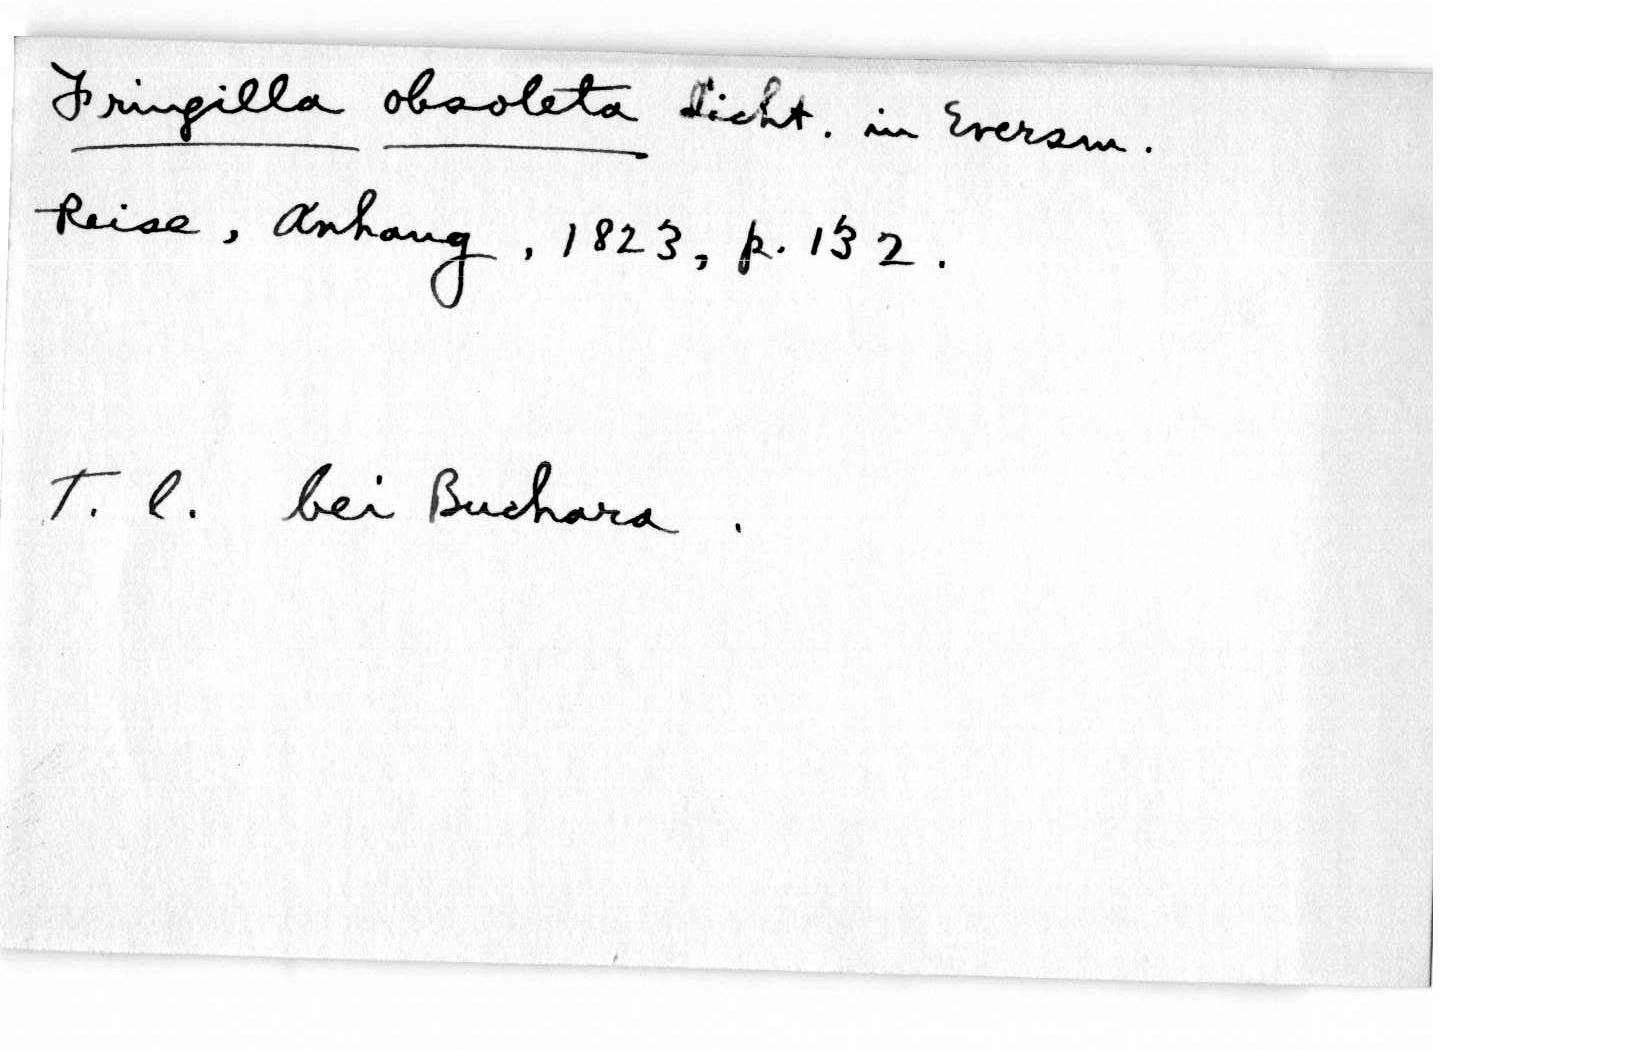 Fringilla obsoleta Licht. in Eversm.
Reise, Anhang, 1823, p. 132.
T. l. bei Buchara.